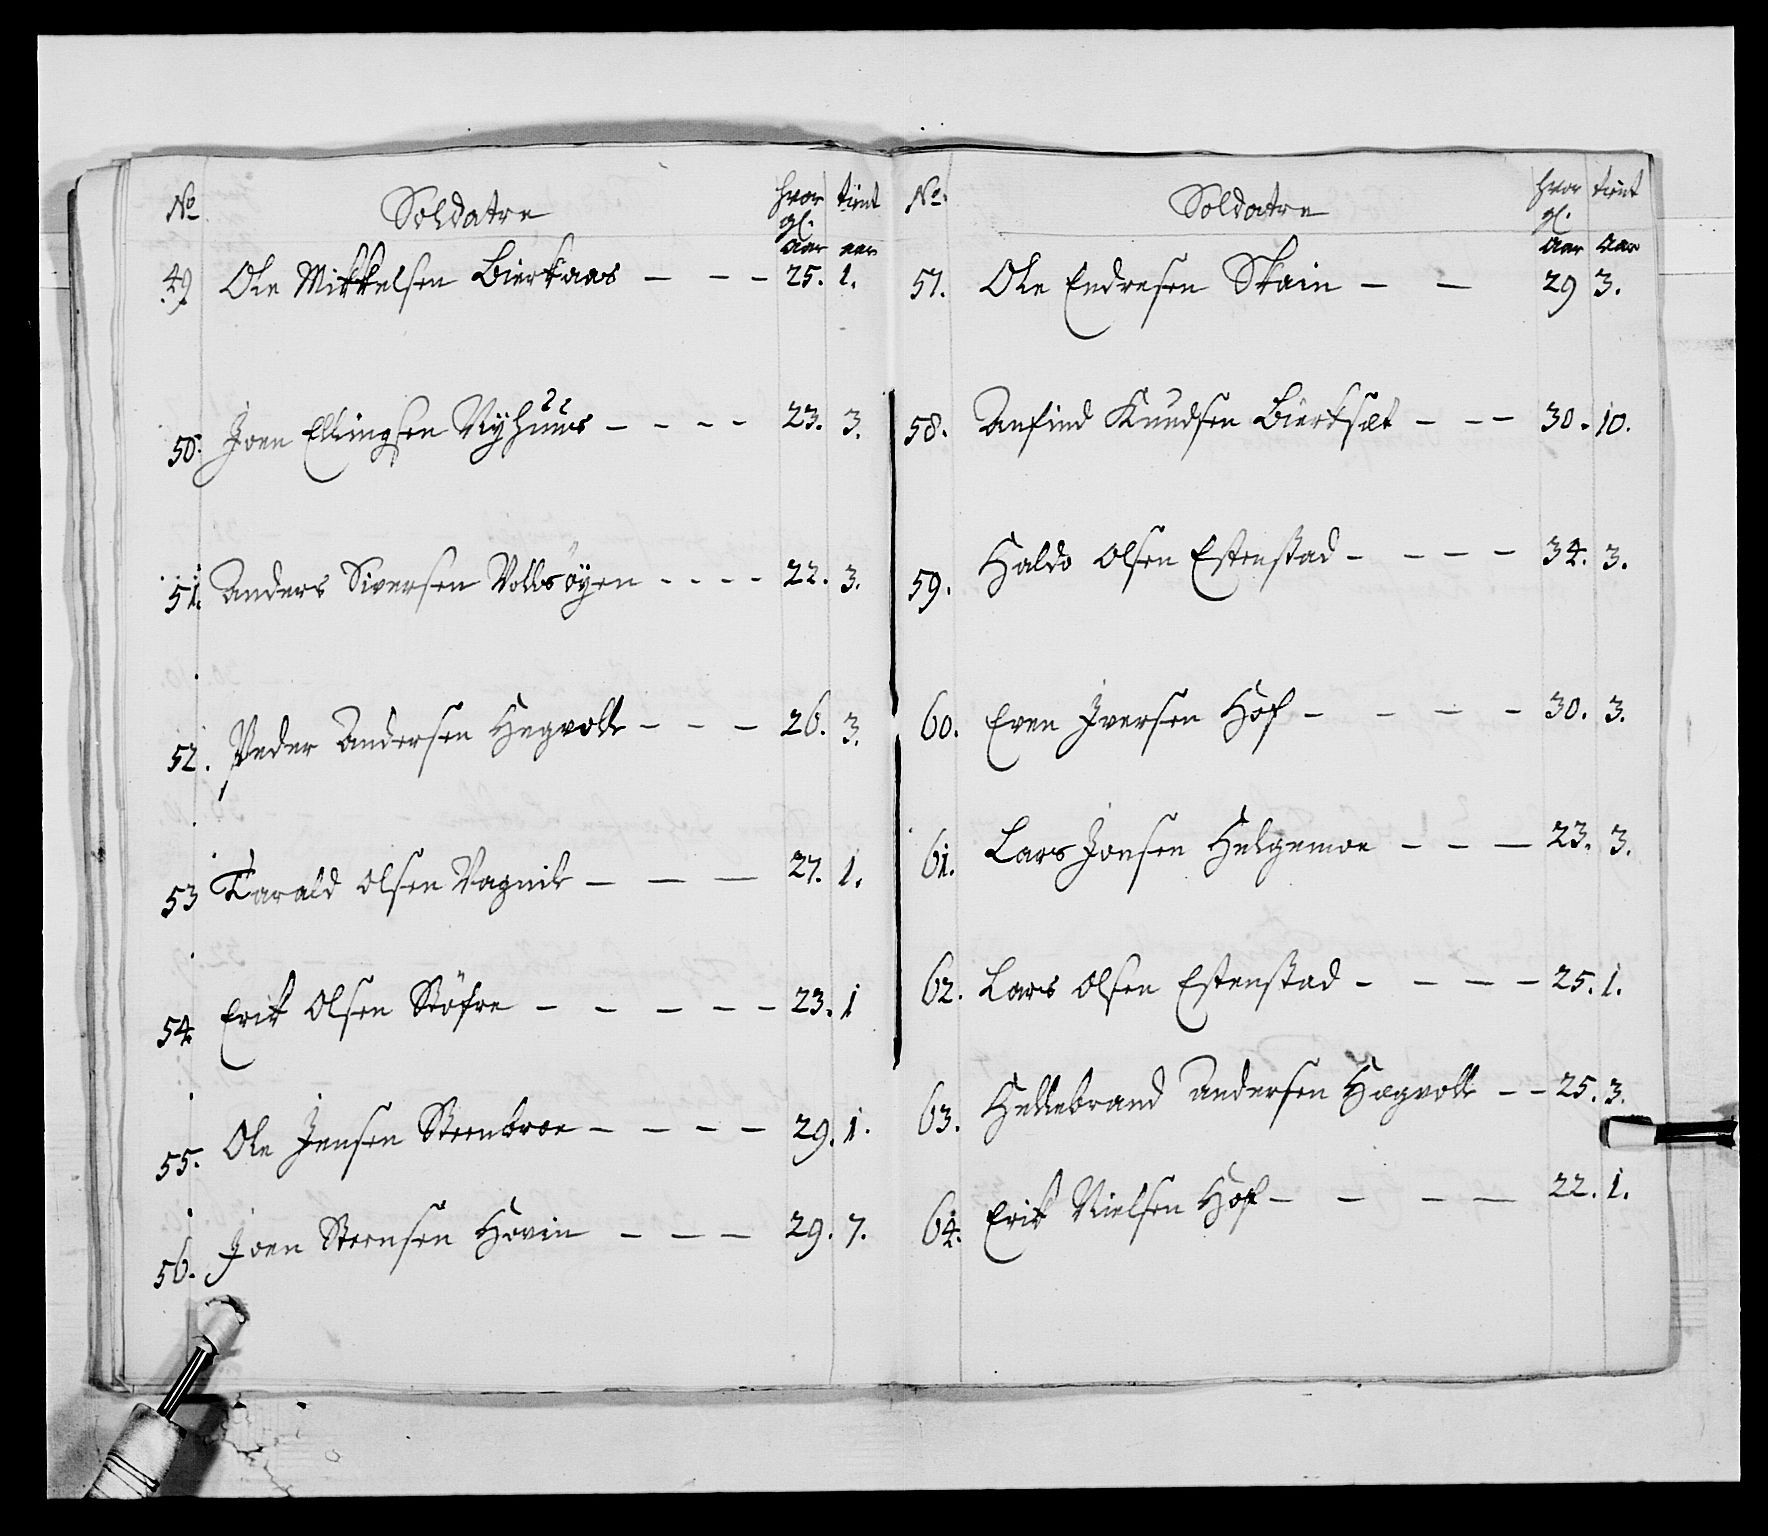 No Soldatre hvor gl. Aar tient aar
49 Ole Mikkelsen Bierkaas - - - 25. 1.
50. Joen Ellingsen Nyhuus - - - - 23. 3.
51. Anders Siversen Volbsøyen - - - - 22. 3.
52. Peder Andersen Hegvolt - - - 26. 3.
53 Tarald Olsen Vagnilt - - - 27. 1.
54 Erik Olsen Støfre - - - - - 23. 1
55. Ole Jensen Steenbroe - - - - 29. 1.
56. Joen Steensen Hovin - - - 29. 7.
No. Soldatre hvor gl. Aar tient Aar
57. Ole Endresen Skain - - 29 3.
58. Anfind Knudsen Bierkset - - - 30. 10.
59. Haldo Olsen Estenstad - - - - 34. 3.
60. Even Iversen Hof - - - - 30. 3.
61. Lars Jonsen Helgemoe - - - 23. 3.
62. Lars Olsen Estenstad - - - - 25. 1.
63. Hellebrand Andersen Hægvolt - - 25. 3.
64. Erik Nielsen Hof - - - - 22. 1.